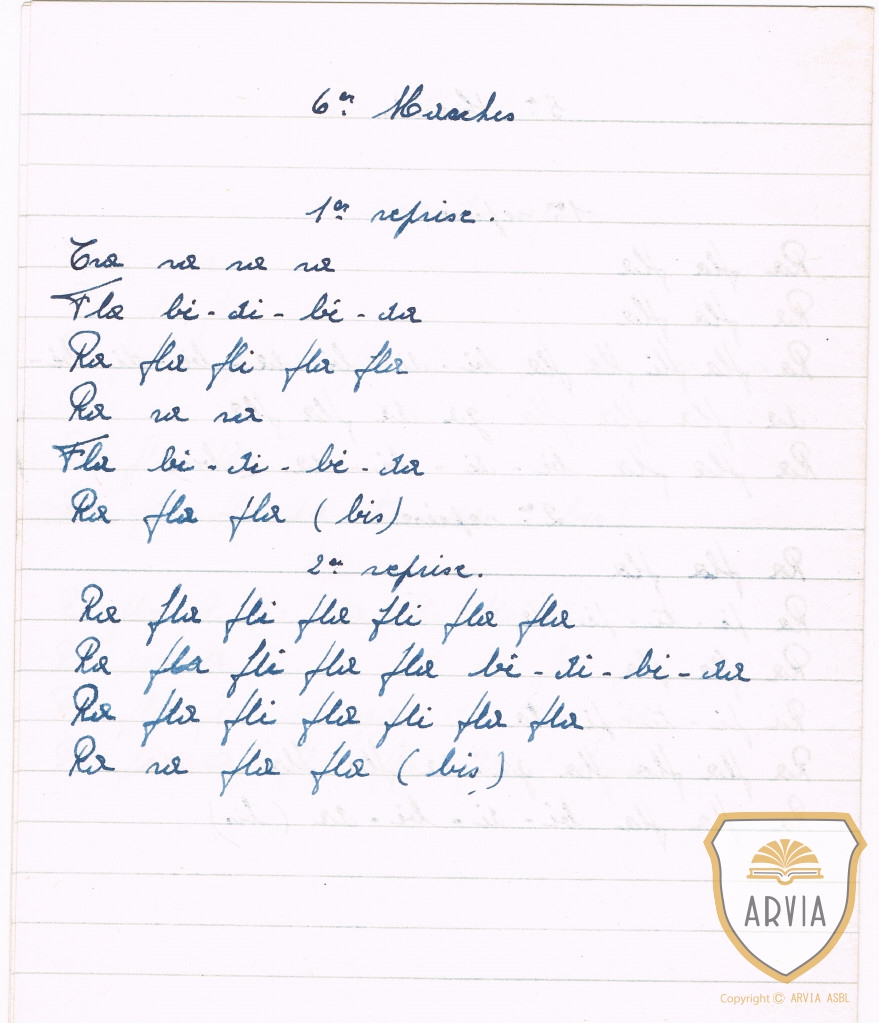 6er Marches
1er reprise.
Tra ra ra ra
Fla bi - di - bi - da
Ra fla fli fla fla
Ra ra ra
Fla bi - di - bi - da
Ra fla fla ( bis)
2er reprise.
Ra fla fli fla fli fla fla
Ra fla fli fla fla bi - di - bi - da
Ra fla fli fla fli fla fla
Ra ra fla fla ( bis )
ARVIA
Copyright © ARVIA ASBL